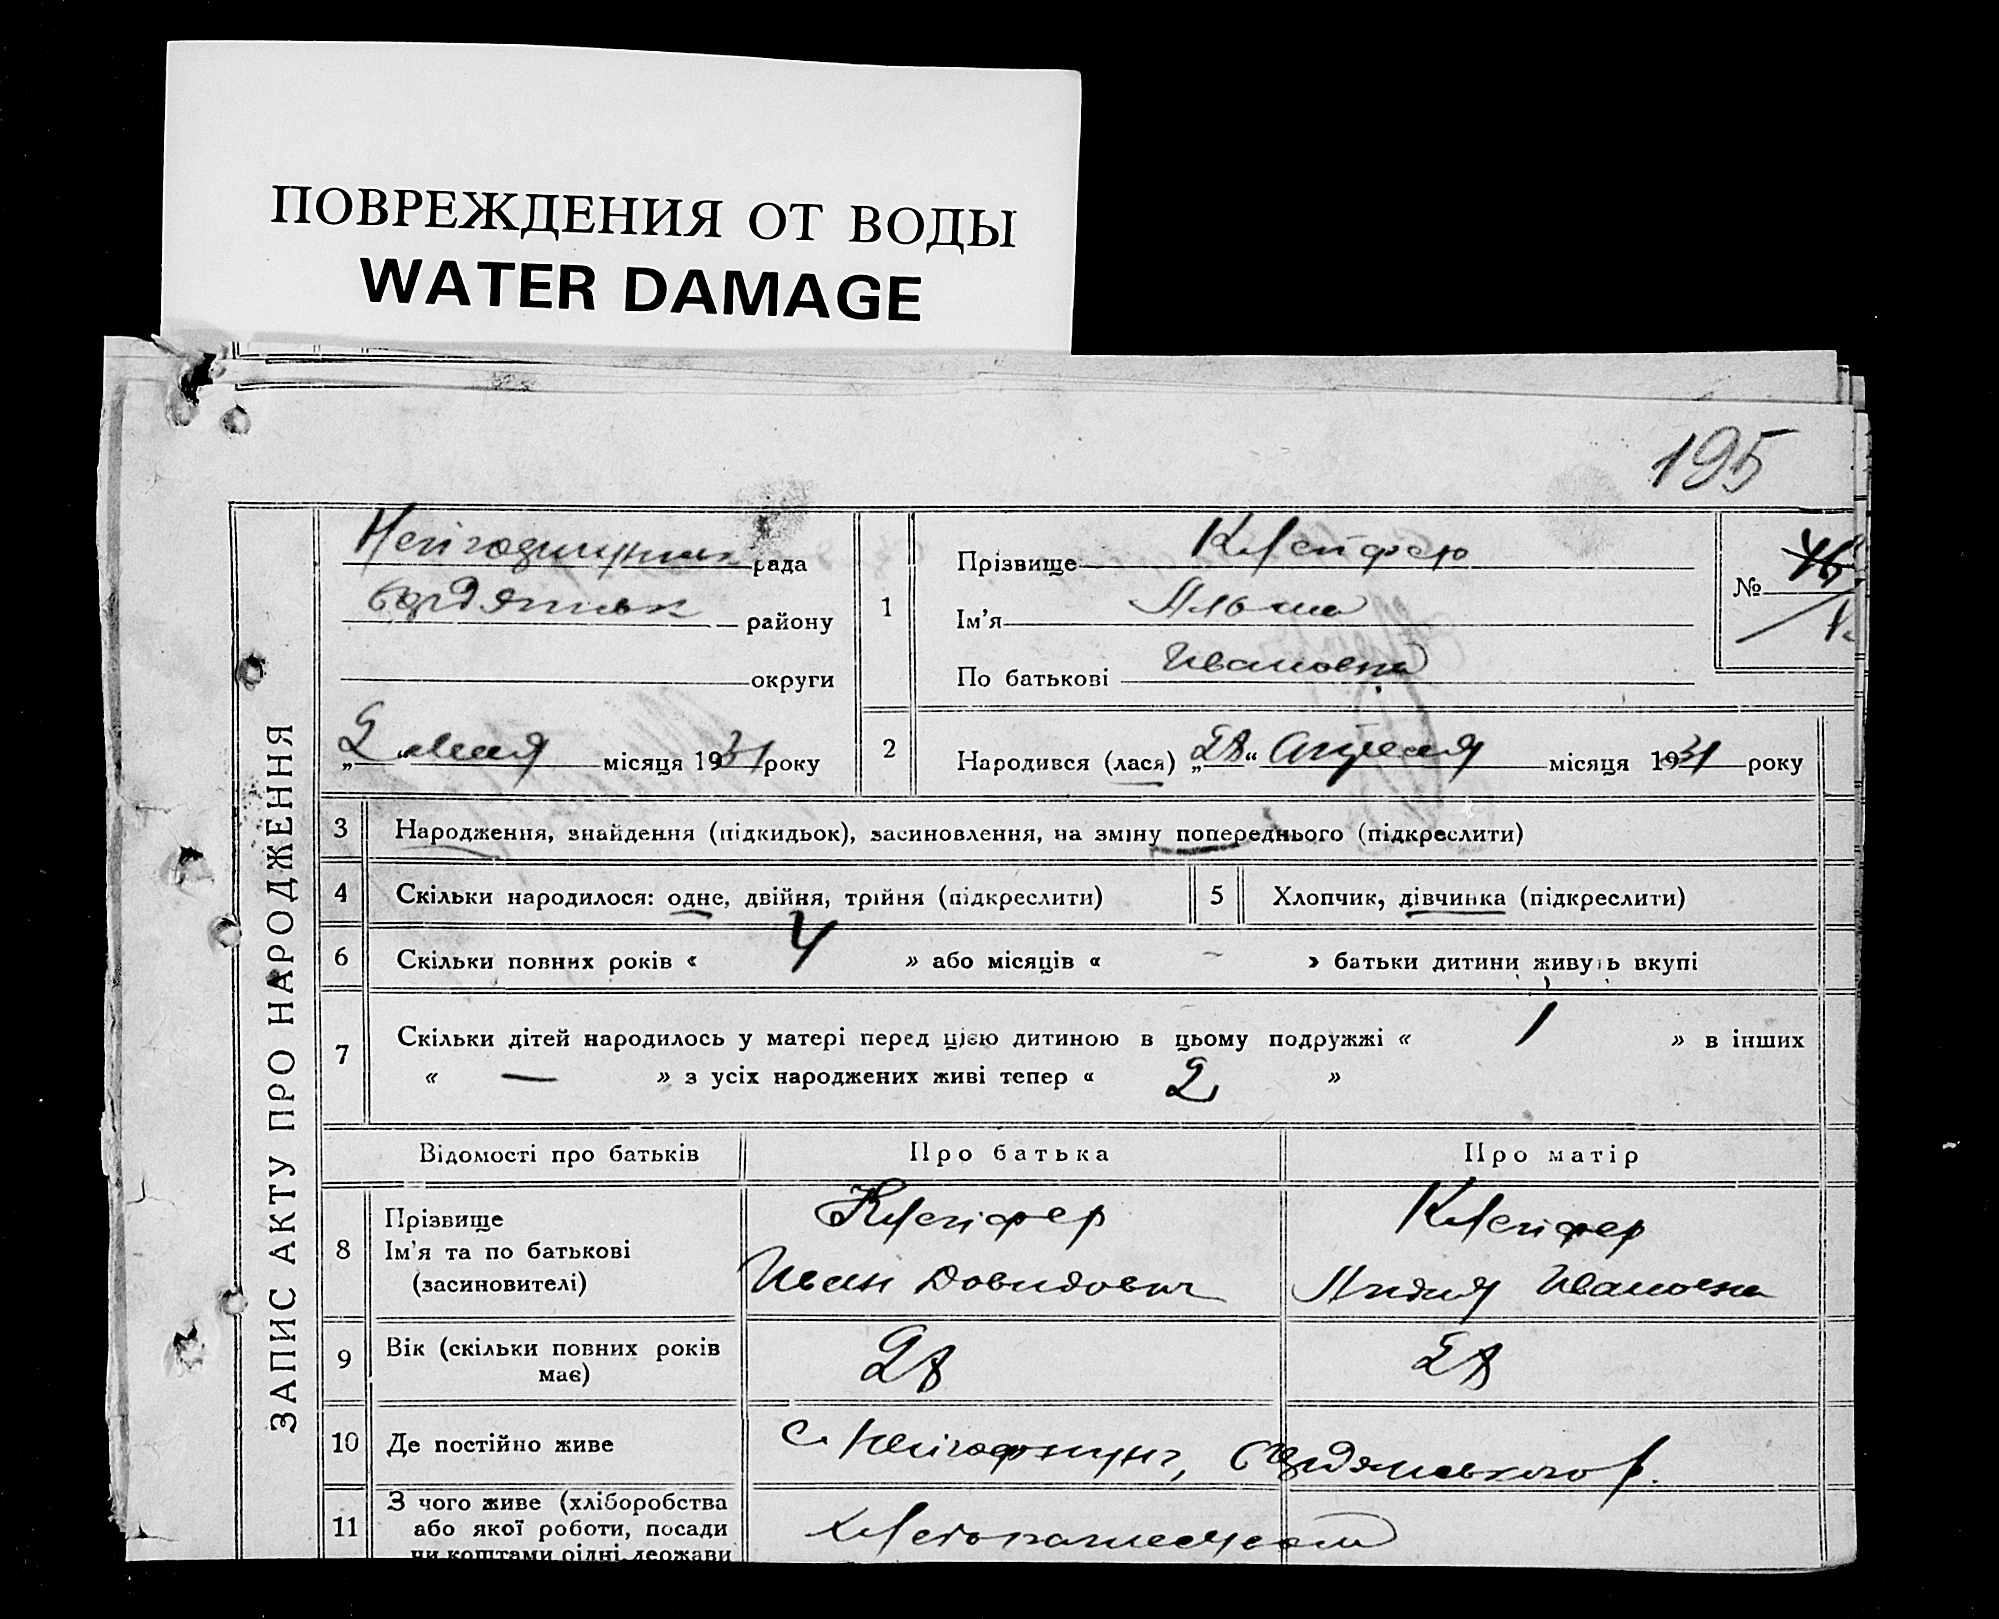 ПОВРЕЖДЕНИЯ ОТ ВОДЫ
WATER DAMAGE
195
ЗАПИС АКТУ ПРО НАРОДЖЕННЯ
рада
району
округи
„2“ мая місяця 1931 року
1
Прізвище Клейфер
Ім'я
По батькові Ивановна
№
2
Народився (лася) „28“ Апреля місяця 1931 року
3 Народження, знайдення (підкидьок), засиновлення, на зміну попереднього (підкреслити)
4 Скільки народилося: одне, двійня, трійня (підкреслити) 5 Хлопчик, дівчинка (підкреслити)
6 Скільки повних років « 4 » або місяців « – » батьки дитини живуть вкупі
7 Скільки дітей народилось у матері перед цією дитиною в цьому подружжі « 1 » в інших
« — » з усіх народжених живі тепер « 2 »
Відомості про батьків Про батька Про матір
8 Прізвище Клейфер Клейфер
Ім'я та по батькові
(засиновителі) Иван Давидович Лидия Ивановна
9 Вік (скільки повних років
має) 28 28
10 Де постійно живе с.
11 З чого живе (хліборобства
або якої роботи, посади
чи коштами рідні, держави